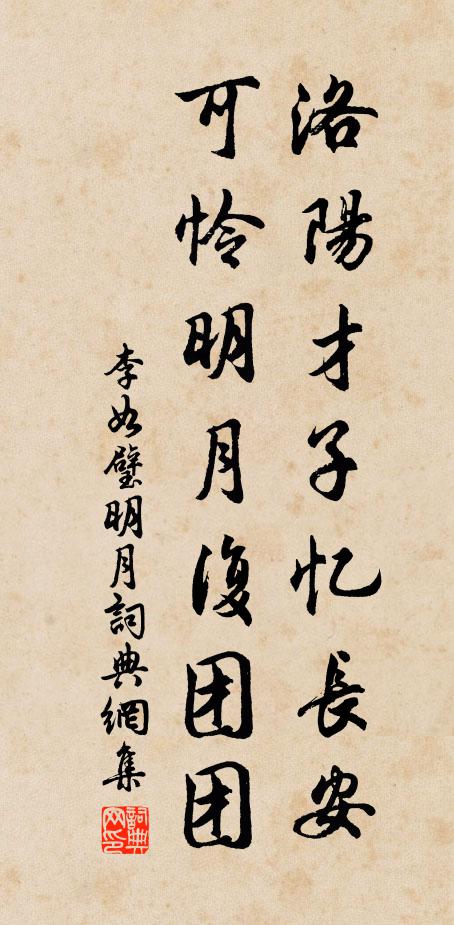 洛陽才子忆長安
可怜明月復团团
李如璧明月詞典網集
詞典网印